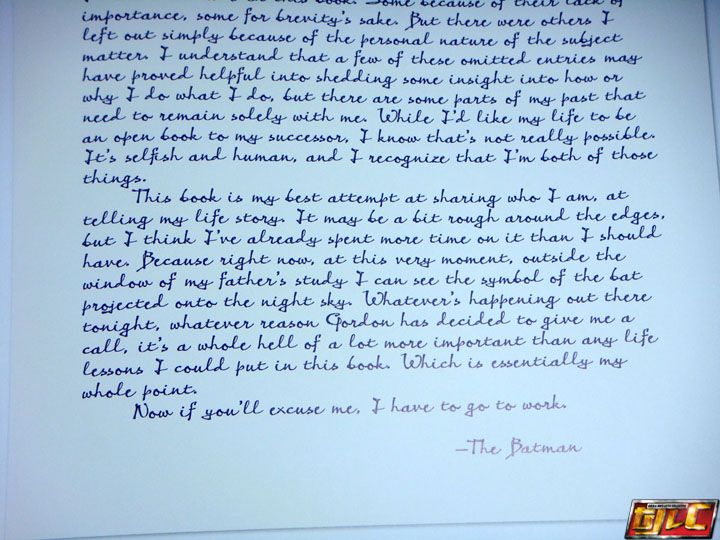 at this book. Some because of their lack of
importance, some for brevity's sake. But there were others I
left out simply because of the personal nature of the subject
matter. I understand that a few of these omitted entries may
have proved helpful into shedding some insight into how or
why I do what I do, but there are some parts of my past that
need to remain solely with me. While I'd like my life to be
an open book to my successor, I know that's not really possible.
It's selfish and human, and I recognize that I'm both of those
things.
This book is my best attempt at sharing who I am, at
telling my life story. It may be a bit rough around the edges,
but I think I've already spent more time on it than I should
have. Because right now, at this very moment, outside the
window of my father's study I can see the symbol of the bat
projected onto the night sky. Whatever's happening out there
tonight, whatever reason Gordon has decided to give me a
call, it's a whole hell of a lot more important than any life
lessons I could put in this book. Which is essentially my
whole point.
Now if you'll excuse me, I have to go to work.
—The Batman